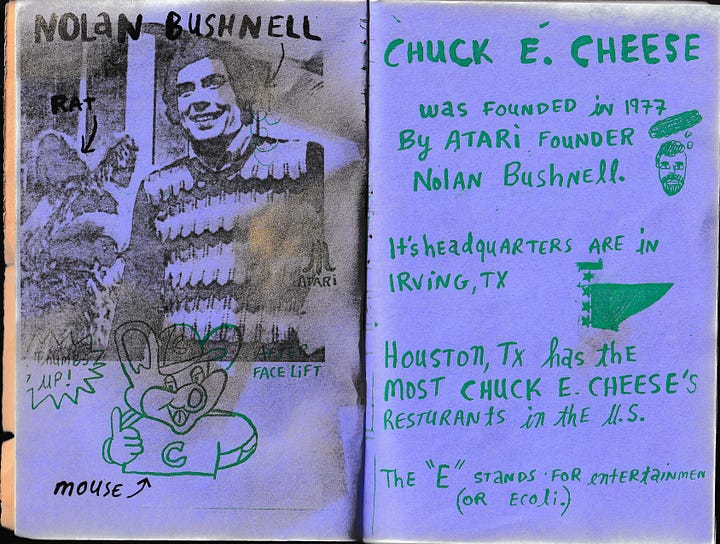 NOLAN BUSHNELL
RAT
ATARI
THUMBS
UP!
AFTER
FACE LIFT
C
MOUSE
CHUCK E. CHEESE
was FOUNDED in 1977
By ATARI FOUNDER
Nolan Bushnell.
It's headquarters are in
IRVING, TX
Houston, TX has the
MOST CHUCK E. CHEESE'S
RESTURANTS in the U.S.
The "E" STANDS FOR entertainmen
(OR Ecoli.)